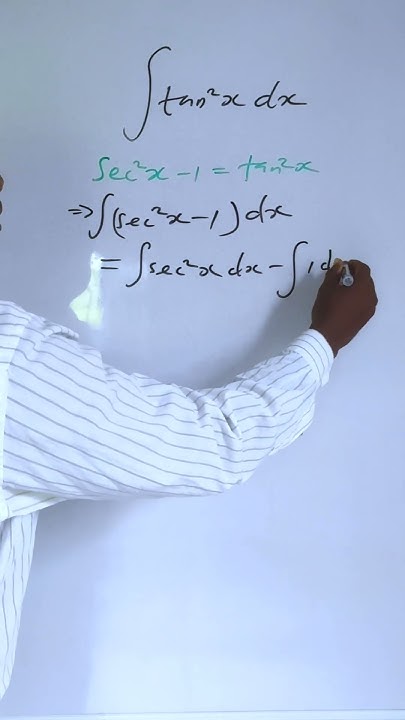 ∫tan²x dx
sec²x - 1 = tan²x
⇒∫(sec²x - 1)dx
= ∫sec²x dx - ∫1 d